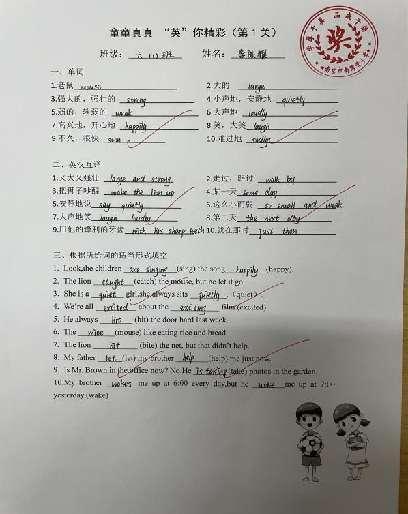 童童真真 “英”你精彩（第1关）
班级： 姓名：
一、单词
1.老鼠 mouse 2.大的 large
3.强大的，强壮的 strong 4.小声地，安静地 quietly
5.弱的，弱 weak 6.大声地 loudly
7.高兴地，开心地 happily 8.笑，大笑 laugh
9.不久，很快 soon 10.难过地 sadly
二、英汉互译
1.又大又强壮 large and strong 2.走过，路过 walk by
3.把狮子吵醒 wake the lion up 4.某一天 some day
5.安静地说 say quietly 6.这么小而弱 so small and weak
7.大声地笑 laugh loudly 8.第二天 the next day
9.用他的锋利的牙齿 with his sharp teeth 10.就在那时 just then
三、根据所给词的适当形式填空
1. Look,the children are singing (sing) the song happily (happy).
2. The lion (catch) the mouse, but he let it go.
3. She is a quiet girl, she always sits quietly (quiet).
4. We're all excited about the exciting film(excited)
5. He always (hit) the door hard last week.
6. The (mouse) like eating rice and bread.
7. The lion (bite) the net, but that didn't help.
8. My father let brother help (help) me just now.
9. Is Mr. Brown in the office now? No.He is taking (take) photos in the garden.
10.My brother wakes me up at 6:00 every day,but he woke me up at 7:00
yesterday.(wake)